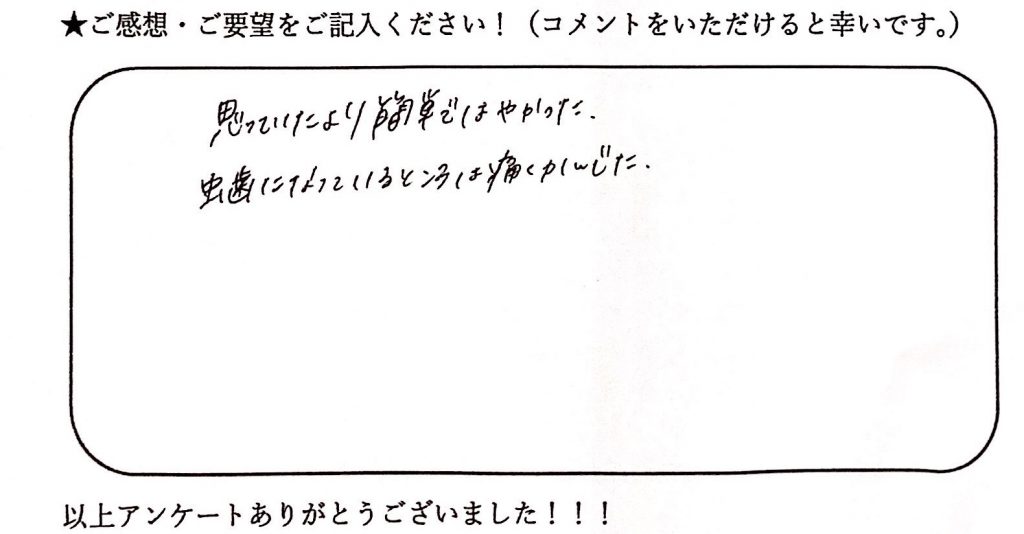 ★ご感想・ご要望をご記入ください！（コメントをいただけると幸いです。）
思っていたより簡単ではやかった.
虫歯になっているところは痛くかんじた.
以上アンケートありがとうございました！！！